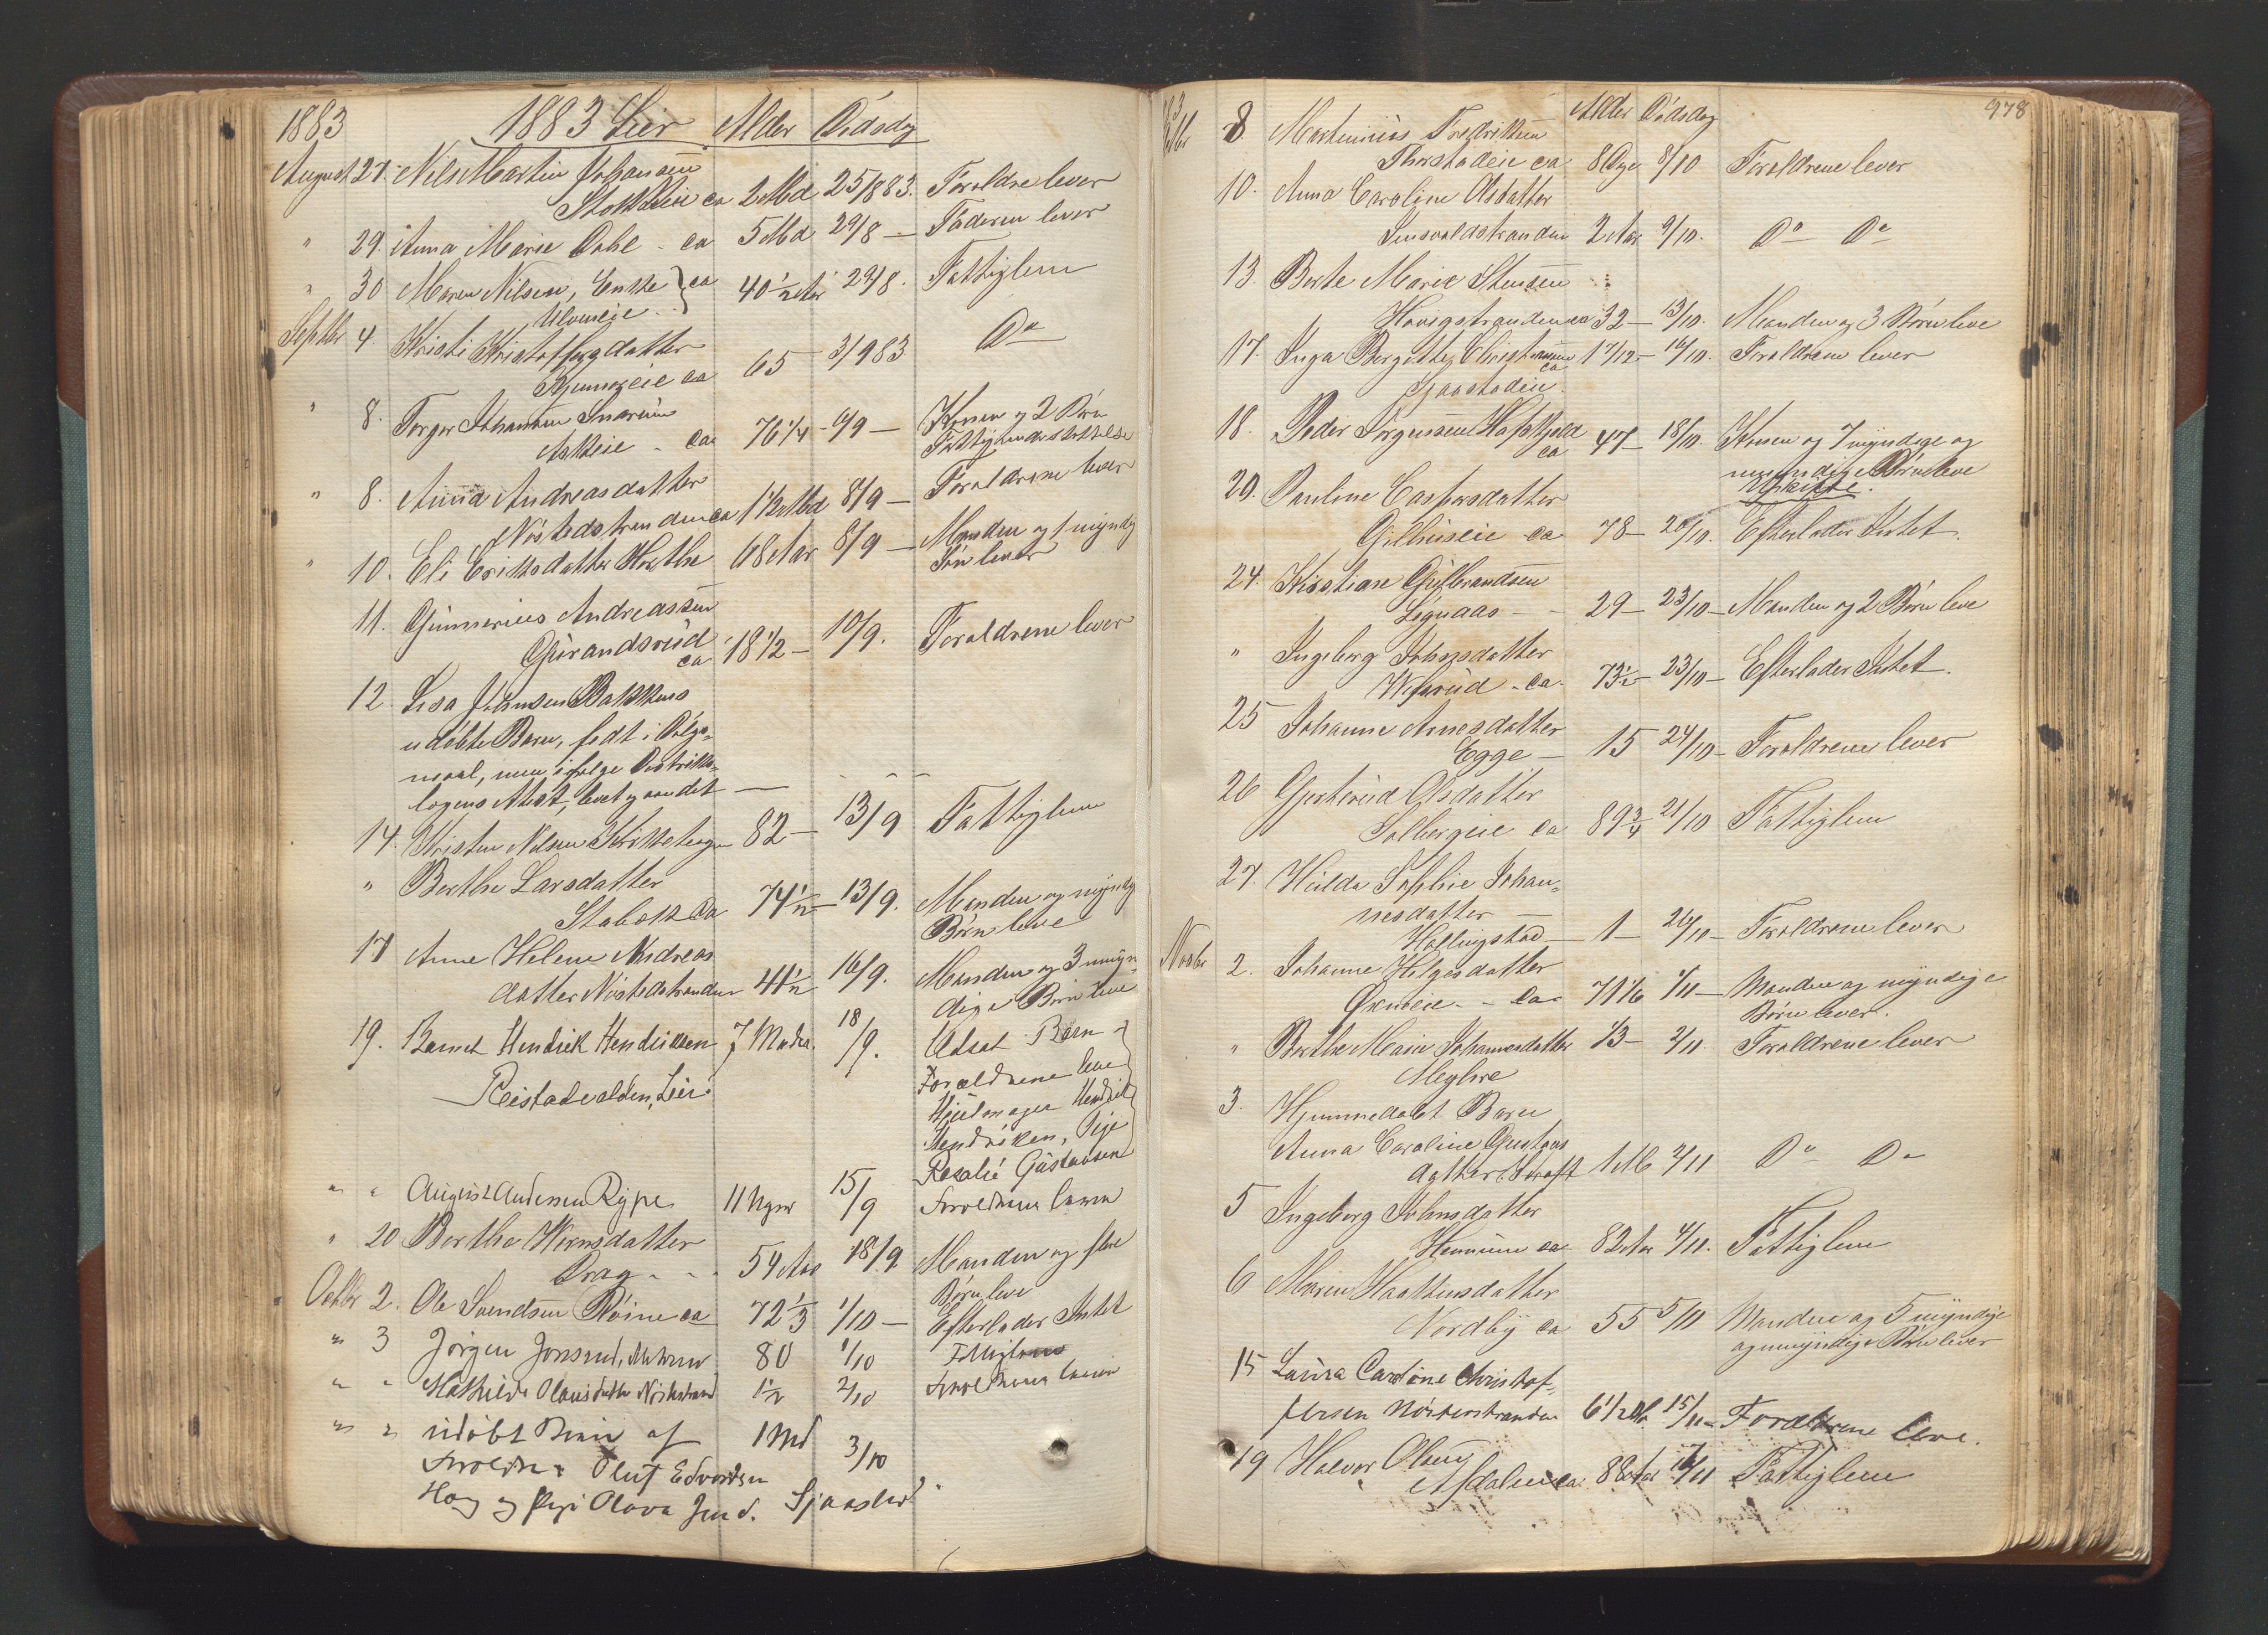 1883 1883 Lier Alder Dødsdg
August 27. Nils Martin Johansen
Stokkeie ca 2 Md 25/8 83. Forældre lever
" 29. Anna Marie Dahl - ca 5 Md 29/8 — Faderen lever
" 30 Maren Nilsen, Enke ca 40 1/2 Aar 29/8. Fattiglem
Septbr 4 Kristi Kristoffersdatter
ca 65 3/9 83 Do
" 8. Torger Johansen
Askeie - ca 76 1/4 - 6/9 — Konen og 2 Børn
Fattigunderstøttelse
" 8. Anna Andreasdatter
Nøstedstranden ca 1 1/2 Md 8/9 — Forældrene lever
" 10. Eli Eriksdatter Horthe 68 Aar 8/9 — Manden og 1 myndig
Søn lever
11. Gunnerius Andreassen
Gurandsrud ca 18 1/2 — 10/9. Forældrene lever
12 Lisa Johnsen Bakkens
udøbte Barn, født i Dølgs-
maal, men ifølge Distrikts-
lægens Attest, levet og aandet —
14. Kristen Nilsen Kirkehagen 82 — 13/9 Fattiglem
" Berthe Larsdatter
Stabæk ca 74 1/2 — 13/9. Manden og myndig
Børn leve
17 Anne Helene Andreas
datter Nøstedstranden 41 1/2 16/9. Manden og 3 umyn-
dige Børn leve
19. Barnet Hendrik Hendriksen 7 Mndr. 18/9. Uægt Barn
Reistadvalden, Lier. Forældrene leve
Hjulmager Hendrik
Hendriksen, Pige
Rosalie Gustavsen
" " August Andersen Rype 11 Uger 15/9 Forældrene leven
" 20 Berthe Hermsdatter
Krag - - - 54 Aar 18/9 Manden og flere
Børn leve
Octbr 2. Ole Svendsen Røine ca 72 1/3 1/10 — Efterlader Intet
" 3 Jørgen Jonsrud, 80 1/10 Fattiglem
" " Mathilde Olausdatter Nøstestrand 1 1/2 2/10 Forældrene leven
" " udøbt Barn af 1 Md 3/10
Forældre: Oluf Edvardsen
Haug og Pige Olava Sjaastad
978
8 Martinius Fredriksen Alder Dødsdag
Thorstadeie ca 8 Dge 8/10 Forældrene lever
10. Anna Caroline Olsdatter
Linnvoldstranden 2 Aar 9/10. Do Do
13. Berte Marie Stensen
Høvigstranden ca 32 — 13/10. Manden og 3 Børn leve
17. Inga Bergitte Christensen 1 7/12 — 16/10. Forældrene lever
ca
Sjaastadeie.
18. Peder Jørgensen Hafskjold
ca 47 — 18/10. Konen og 7 myndige og
umyndige Børn leve
20. Pauline Caspersdatter
Gilhuseie ca 78 — 20/10. Efterlader Intet.
24. Kristiane Gulbrandsen
Lognaas - - 29 — 23/10 — Manden og 2 Børn leve
" Ingeborg Johnsdatter
ca 73 1/2 — 23/10 — Efterlader Intet.
25 Johanne Arnesdatter
Egge — 15 24/10 — Forældrene lever
26 Gjertrud Olsdatter
Solbergeie ca 89 3/4 21/10 Fattiglem
27. Hilda Sophie Johan-
nesdatter —
Hallingstad — 1 — 26/10 — Forældrene lever
Novbr 2. Johanne Helgesdatter
ca 71 1/6 1/11 — Manden og myndige
Børn lever.
" Berthe Marie Johannesdatter 1/3 — 2/11 Forældrene lever
Meghre
3. Hjemmedøbt Barn
Anna Caroline Gustavs
datter 1 Md 2/11 Do Do
5 Ingeborg Johnsdatter
Hennum ca 82 Aar 4/11. Fattiglem
6 Maren Martinsdatter
Nordby ca 55 5/11 Manden og 5 myndige
og umyndige Børn lever
15 Laura Cardine Christof-
fersen Nøsterstranden 6 1/2 15/11 — Forældrene leve.
19 Halvor Olsen
ca 88 Aar 18/11 Fattiglem